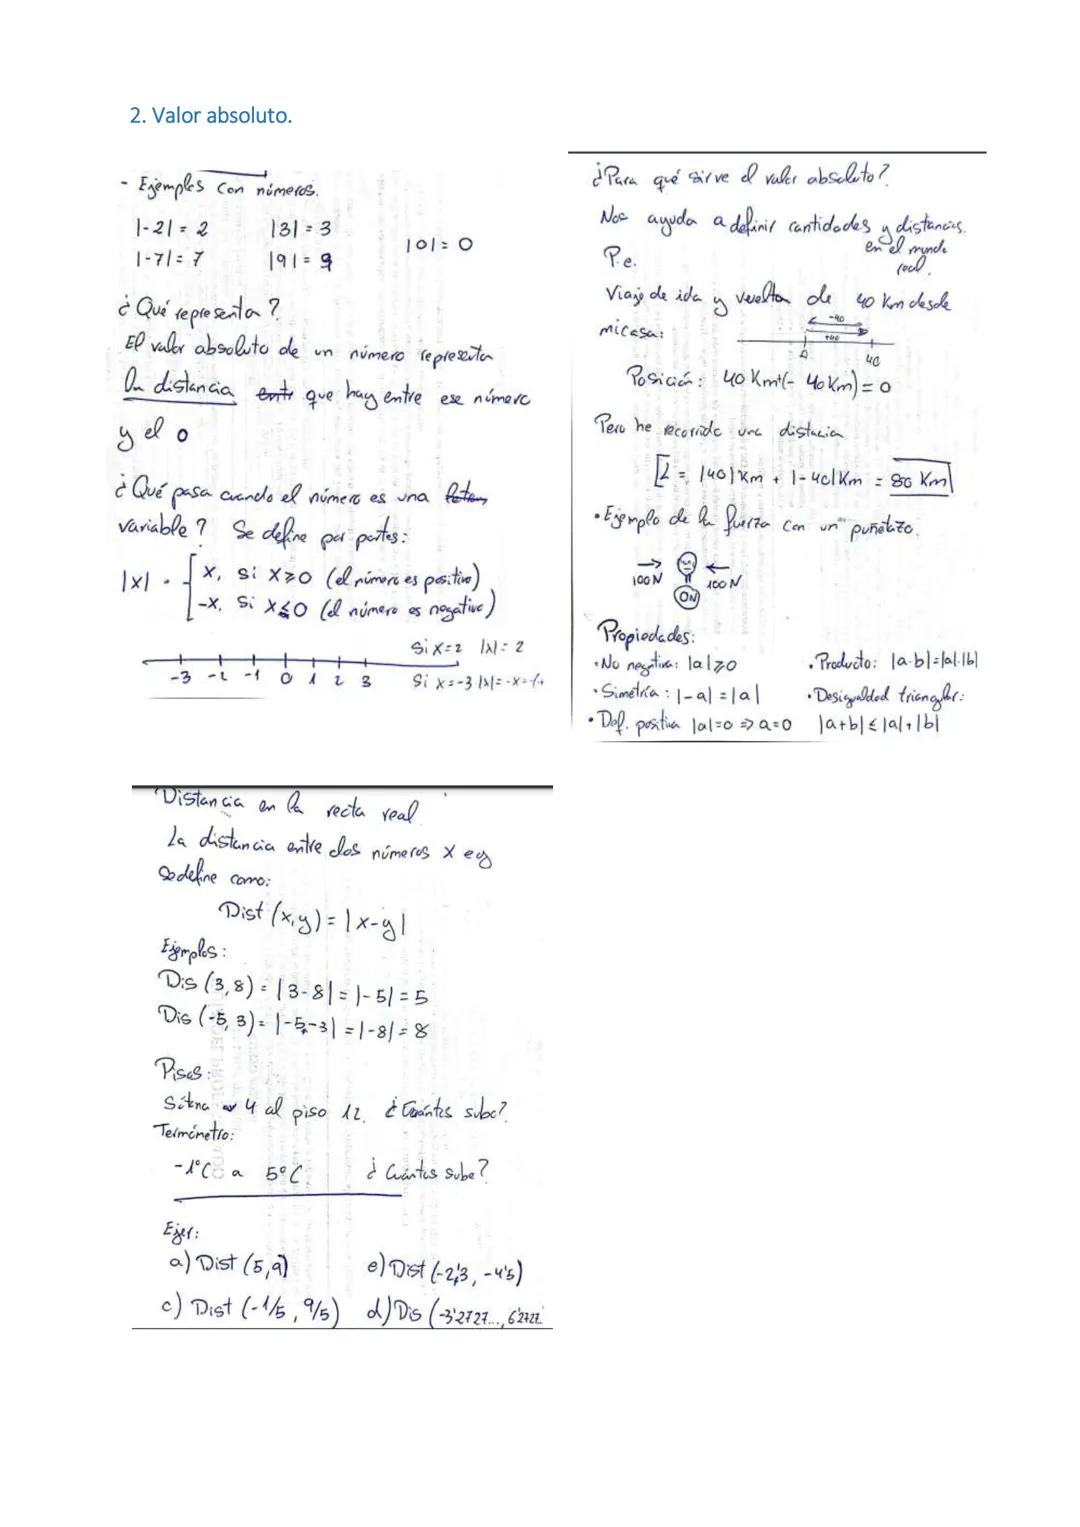 2. Valor absoluto.
- Ejemplos con números.
|-2| = 2 |3| = 3
|-7| = 7 |9| = 9 |0| = 0
¿Qué representa?
El valor absoluto de un número representa
la distancia que hay entre ese número
y el 0
¿Qué pasa cuando el número es una
variable? Se define por partes:
|x| = { x, si x ≥ 0 (el número es positivo)
-x, si x ≤ 0 (el número es negativo)
Si x=2 |x| = 2
-3 -2 -1 0 1 2 3 Si x=-3 |x| = -x =
¿Para qué sirve el valor absoluto?
Nos ayuda a definir cantidades y distancias
en el mundo
real.
P.e.
Viaje de ida y vuelta de 40 Km desde
mi casa:
-40
+40
0 40
Posición: 40 Km+(-40 Km) = 0
Pero he recorrido una distancia
L = |40| Km + |-40| Km = 80 Km
• Ejemplo de la fuerza con un puñetazo.
100 N 100 N
ON
Propiedades:
• No negativa: |a| ≥ 0 • Producto: |a·b| = |a|·|b|
• Simetría: |-a| = |a| • Desigualdad triangular:
• Def. positiva |a|=0 ⇒ a=0 |a+b| ≤ |a|+|b|
Distancia en la recta real
La distancia entre dos números x e y
se define como:
Dist (x,y) = |x-y|
Ejemplos:
Dis (3,8) = |3-8| = |-5| = 5
Dis (-5,3) = |-5-3| = |-8| = 8
Pisos:
4 al piso 12. ¿Cuántos sube?
Termómetro:
-1°C a 5°C ¿Cuántos sube?
Ejer:
a) Dist (5,9) e) Dist (-2'3, -4'5)
c) Dist (-1/5, 9/5) d) Dis (-3'2727..., 6'2727..